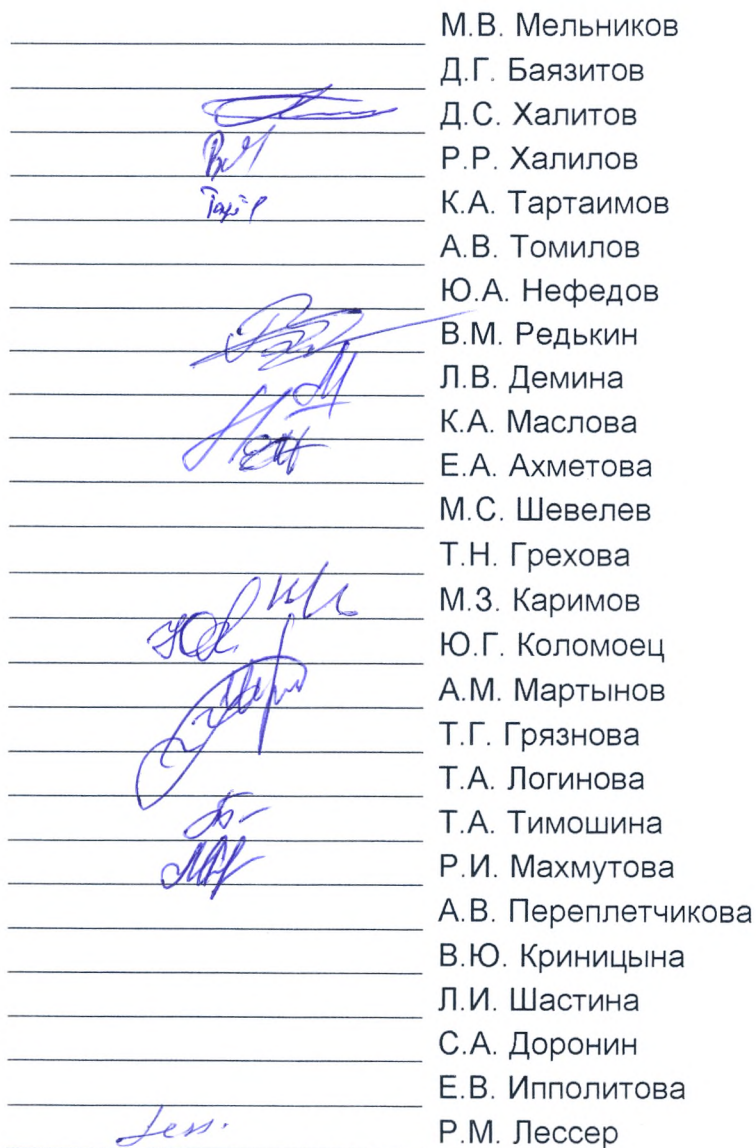 М.В. Мельников
Д.Г. Баязитов
Д.С. Халитов
Р.Р. Халилов
К.А. Тартаимов
А.В. Томилов
Ю.А. Нефедов
В.М. Редькин
Л.В. Демина
К.А. Маслова
Е.А. Ахметова
М.С. Шевелев
Т.Н. Грехова
М.З. Каримов
Ю.Г. Коломоец
А.М. Мартынов
Т.Г. Грязнова
Т.А. Логинова
Т.А. Тимошина
Р.И. Махмутова
А.В. Переплетчикова
В.Ю. Криницына
Л.И. Шастина
С.А. Доронин
Е.В. Ипполитова
Р.М. Лессер